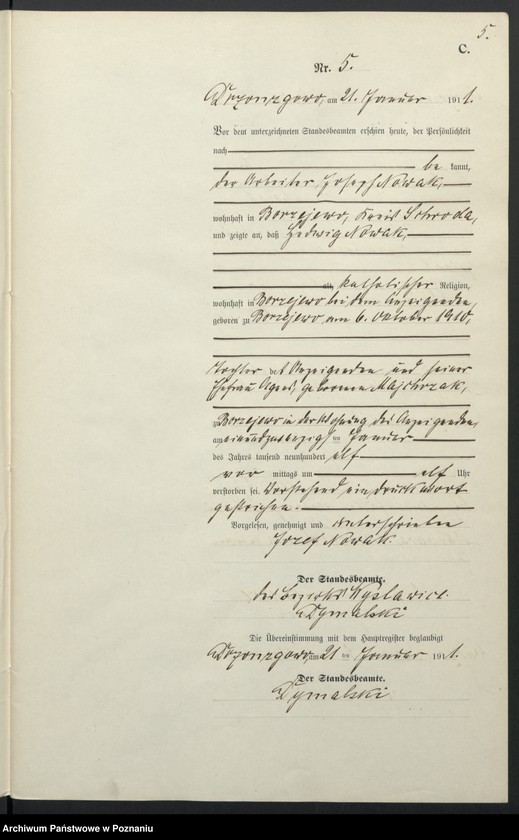 5.
C.
Nr. 5.
am 21. Januar 1911.
Vor dem unterzeichneten Standesbeamten erschien heute, der Persönlichkeit
nach
be kannt,
der Arbeiter Joseph Nowak,
wohnhaft in Borzejewo, Kreis Schroda,
und zeigte an, daß Hedwig Nowak,
alt, katholischer Religion,
wohnhaft in Borzejewo bei dem Anzeigenden,
geboren zu Borzejewo am 6. Oktober 1910,
Tochter des Anzeigenden und seiner
Ehefrau Agnes, geborenen Majchrzak,
Borzejewo in der Wohnung des Anzeigenden,
am einundzwanzigsten Januar
des Jahrs tausend neunhundert elf
vor mittags um elf Uhr
verstorben sei. Vorstehend ein Druckwort
gestrichen.
Vorgelesen, genehmigt und unterschrieben
Jozef Nowak.
Der Standesbeamte.
des Bezirks Wyslawice.
Dymalski
Die Übereinstimmung mit dem Hauptregister beglaubigt
am 21 ten Januar 1911.
Der Standesbeamte.
Dymalski
Archiwum Państwowe w Poznaniu